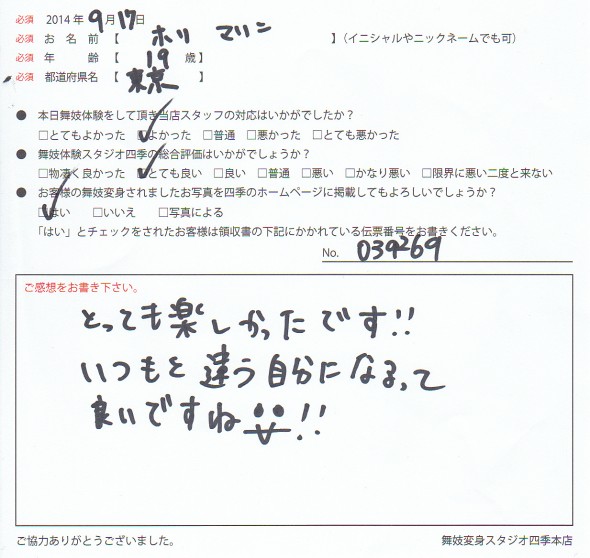 必須 2014年9月17日
必須 お名前【 ホリ マリン 】(イニシャルやニックネームでも可)
必須 年齢【 19 歳】
必須 都道府県名【 東京 】
● 本日舞妓体験をして頂き当店スタッフの対応はいかがでしたか?
□とてもよかった ☑よかった □普通 □悪かった □とても悪かった
● 舞妓体験スタジオ四季の総合評価はいかがでしょうか?
□物凄く良かった ☑とても良い □良い □普通 □悪い □かなり悪い □限界に悪い二度と来ない
● お客様の舞妓変身されましたお写真を四季のホームページに掲載してもよろしいでしょうか?
☑はい □いいえ □写真による
「はい」とチェックをされたお客様は領収書の下記にかかれている伝票番号をお書きください。
No. 039269
ご感想をお書き下さい。
とっても楽しかったです!!
いつもと違う自分になるって
良いですね!!
ご協力ありがとうございました。 舞妓変身スタジオ四季本店